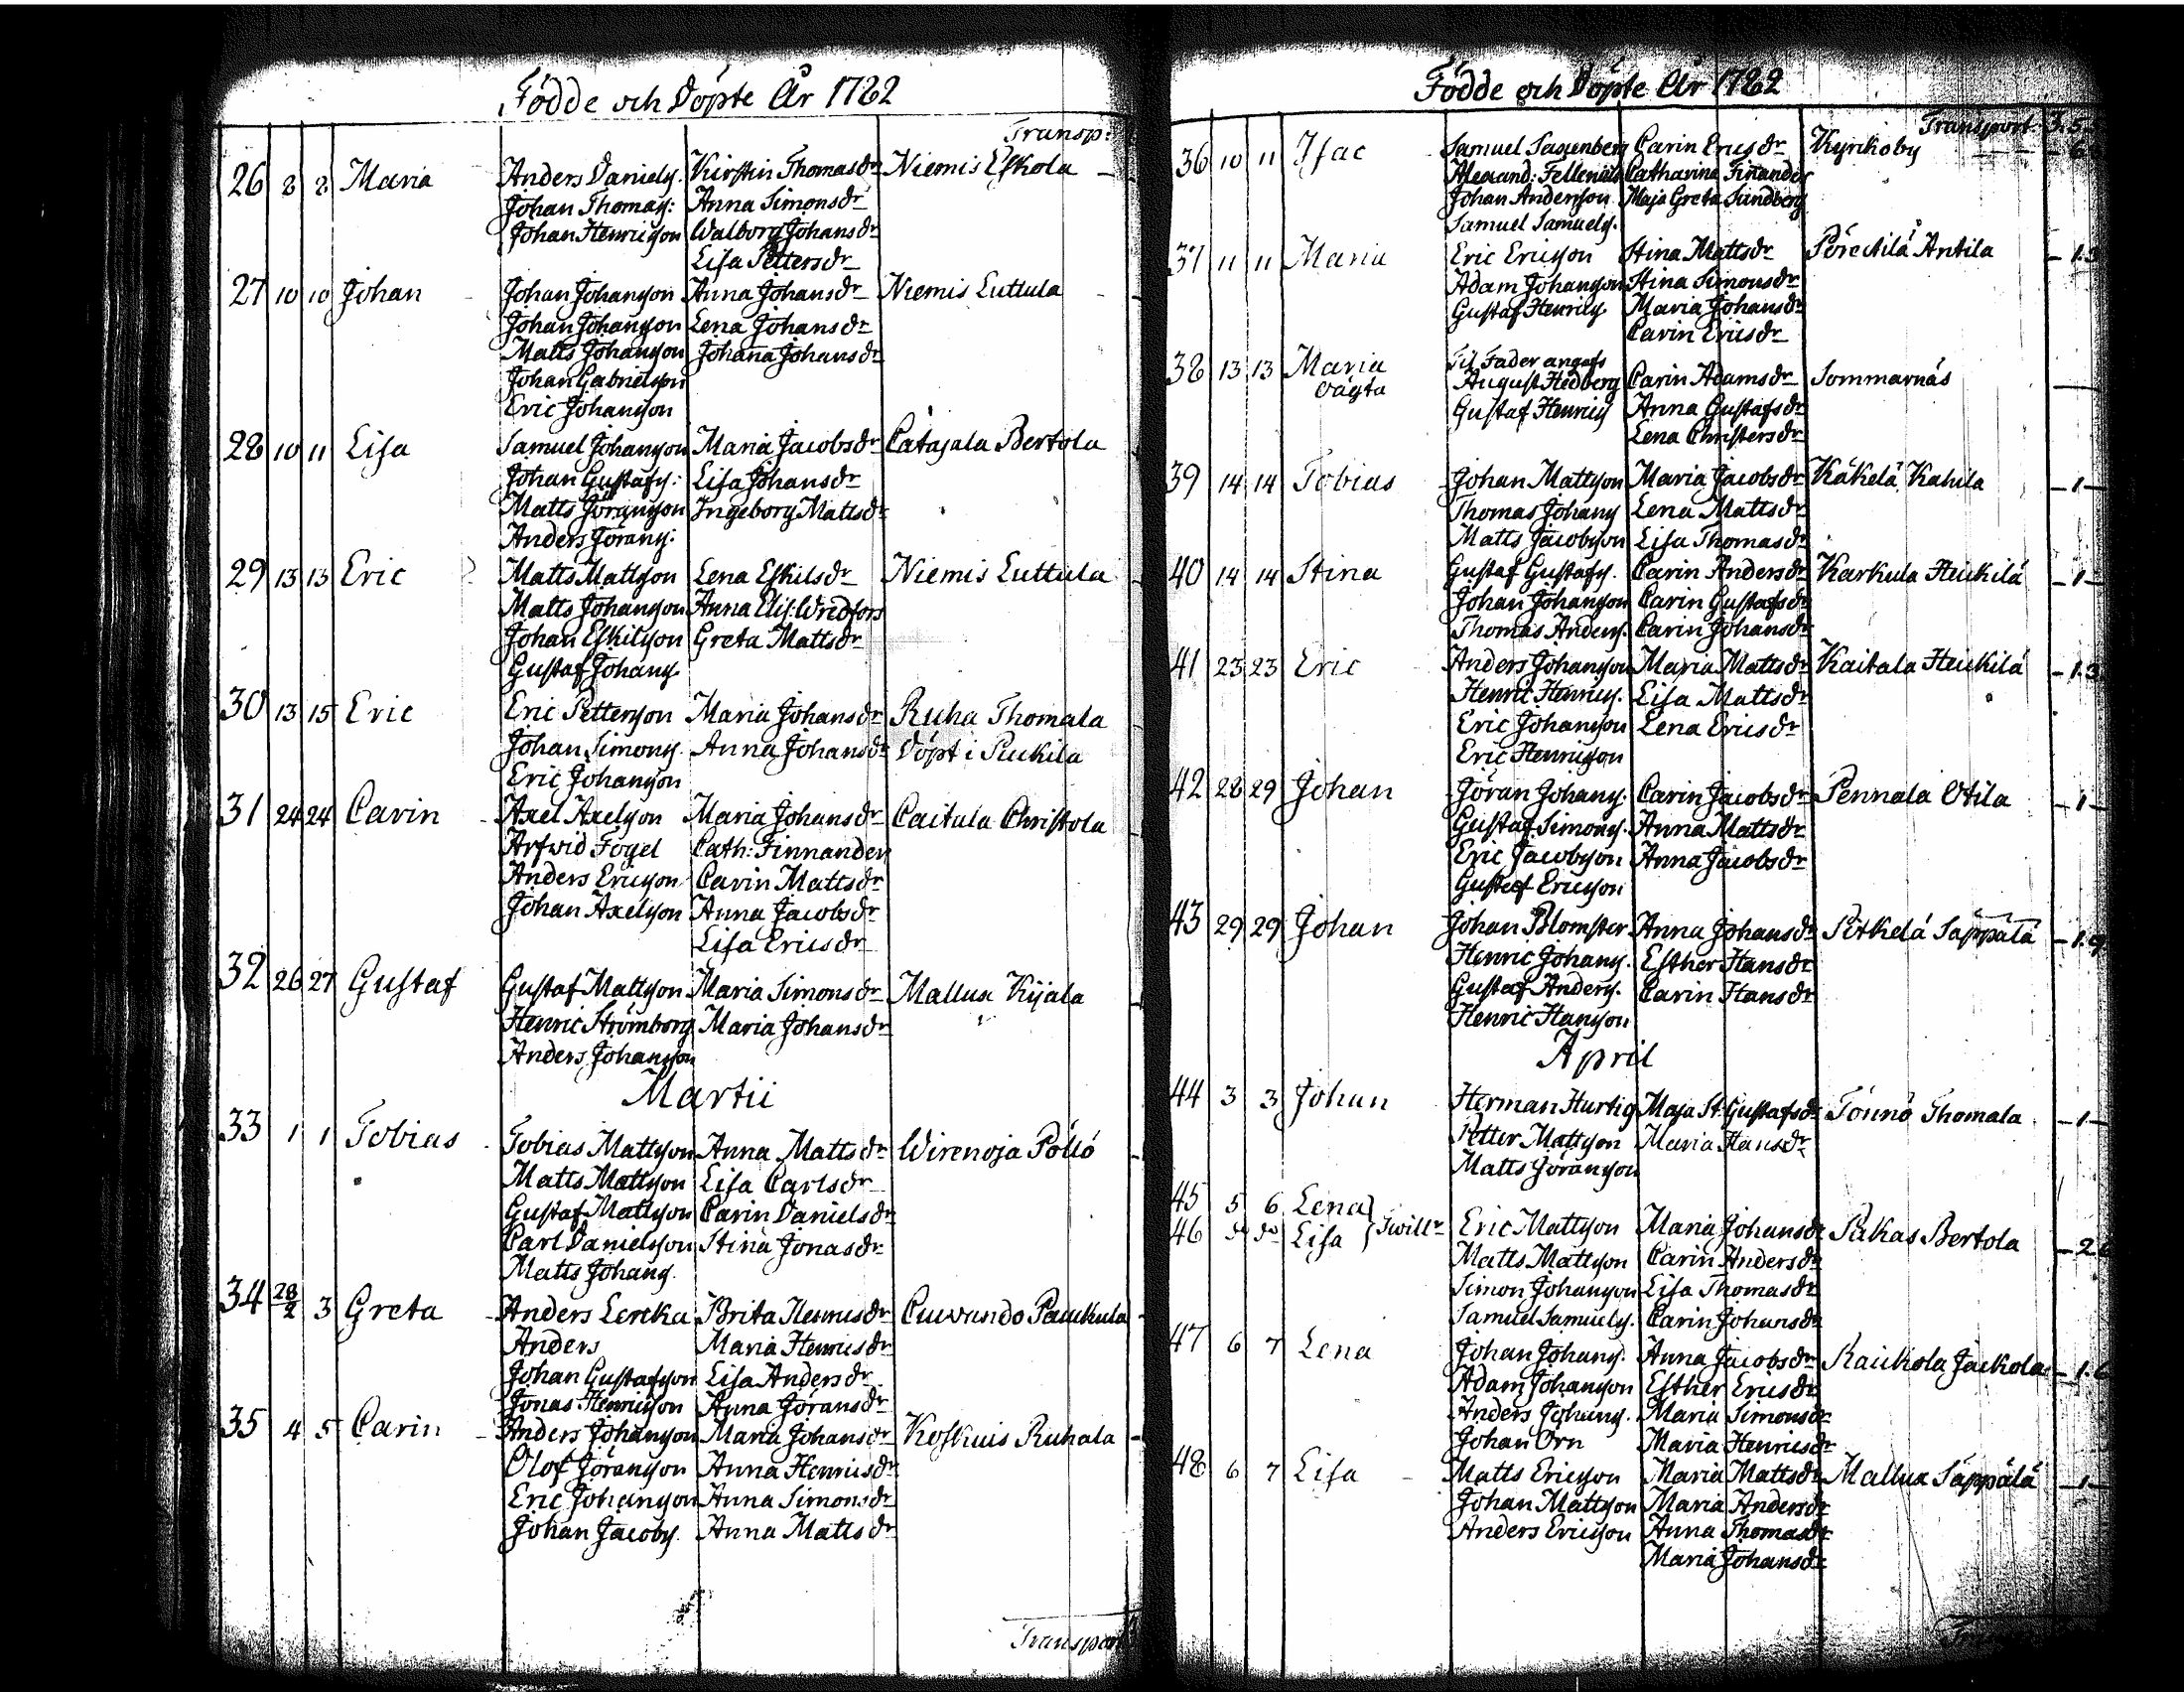 Födde och Döpte År 1782
Transp:
26 8 8 Maria Anders Daniels. Kirstin Thomasdr Niemis Eskola
Johan Thomas: Anna Simonsdr
Johan Henricsson Walborg Johansdr
Lisa Pettersdr
27 10 10 Johan Johan Johansson Anna Johansdr Niemis Luttula
Johan Johansson Lena Johansdr
Matts Johansson Johana Johansdr
Johan Gabrielsson
Eric Johansson
28 10 11 Lisa Samuel Johansson Maria Jacobsdr Catajala Bertola
Johan Gustafs: Lisa Johansdr
Matts Göransson Ingeborg Mattsdr
Anders Görans:
29 13 13 Eric Matts Mattsson Lena Eskilsdr Niemis Luttula
Matts Johansson Anna Elis: Wredfors
Johan Eskilsson Greta Mattsdr
Gustaf Johans.
30 13 15 Eric Eric Pettersson Maria Johansdr Ruha Thomala
Johan Simons. Anna Johansdr Döpt i Peukila
Eric Johansson
31 24 24 Carin Axel Axelsson Maria Johansdr Caitula Christola
Arfwid Fogel Cath: Finnander
Anders Ericsson Carin Mattsdr
Johan Axelsson Anna Jacobsdr
Lisa Ericsdr
32 26 27 Gustaf Gustaf Mattsson Maria Simonsdr Mallux Kyjala
Henric Strömborg Maria Johansdr
Anders Johansson
Martii
33 1 1 Tobias Tobias Mattsson Anna Mattsdr Wirenoja Pöllö
Matts Mattsson Lisa Carlsdr
Gustaf Mattsson Carin Danielsdr
Carl Danielsson Stina Jonasdr
Matts Johans.
34 28/2 3 Greta Anders Lercka Brita Henricsdr Cuivando Paukkula
Anders Maria Henricsdr
Johan Gustafsson Lisa Andersdr
Jonas Henricsson Anna Göransdr
35 4 5 Carin Anders Johansson Maria Johansdr Koskuis Ruhala
Olof Göransson Anna Henricsdr
Eric Johansson Anna Simonsdr
Johan Jacobs. Anna Mattsdr
Transport
Födde och Döpte År 1782
Transport 3.5
36 10 11 Isac Samuel Carin Ericsdr Kyrkoby
Alexand: Fellenius Catharina Finander
Johan Andersson Maja Greta Sundberg
Samuel Samuels.
37 11 11 Maria Eric Ericsson Stina Mattsdr Perechilä Antila
Adam Johansson Stina Simonsdr
Gustaf Henrics. Maria Johansdr
Carin Ericsdr
38 13 13 Maria Til Fader angafs
oägta August Hedberg Carin Adamsdr Sommarnäs
Gustaf Henrics Anna Gustafsdr
Lena Christersdr
39 14 14 Tobias Johan Mattsson Maria Jacobsdr Käkelä Kahila -1-
Thomas Johans Lena Mattsdr
Matts Jacobsson Lisa Thomasdr
40 14 14 Stina Gustaf Gustafs. Carin Andersdr Karkula Heikilä -1-
Johan Johansson Carin Gustafsdr
Thomas Anders. Carin Johansdr
41 23 23 Eric Anders Johansson Maria Mattsdr Kaitala Heikilä -1.3
Henric Henrics. Lisa Mattsdr
Eric Johansson Lena Ericsdr
Eric Henricsson
42 28 29 Johan Jöran Johans. Carin Jacobsdr Pennala Otila -1-
Gustaf Simons. Anna Mattsdr
Eric Jacobsson Anna Jacobsdr
Gustaf Ericsson
43 29 29 Johan Johan Blomster Anna Johansdr Pitkelä Sappälä
Henric Johans. Esther Hansdr
Gustaf Anders. Carin Hansdr
Henric Hansson
April
44 3 3 Johan Herman Hurtig Maja St. Gustafsdr Tönnö Thomala -1-
Petter Mattsson Maria Hansdr
Matts Göransson
45 5 6 Lena
46 do do Lisa } Twillr Eric Mattsson Maria Johansdr Pakas Bertola
Matts Mattsson Carin Andersdr
Simon Johansson Lisa Thomasdr
Samuel Samuels. Carin Johansdr
47 6 7 Lena Johan Johans. Anna Jacobsdr Raickola Jackola -1.6
Adam Johansson Esther Ericsdr
Anders Johans. Maria Simonsdr
Johan Orn Maria Henricsdr
48 6 7 Lisa Matts Ericsson Maria Mattsdr Mallux Säppälä -1-
Johan Mattsson Maria Andersdr
Anders Ericsson Anna Thomasdr
Maria Johansdr